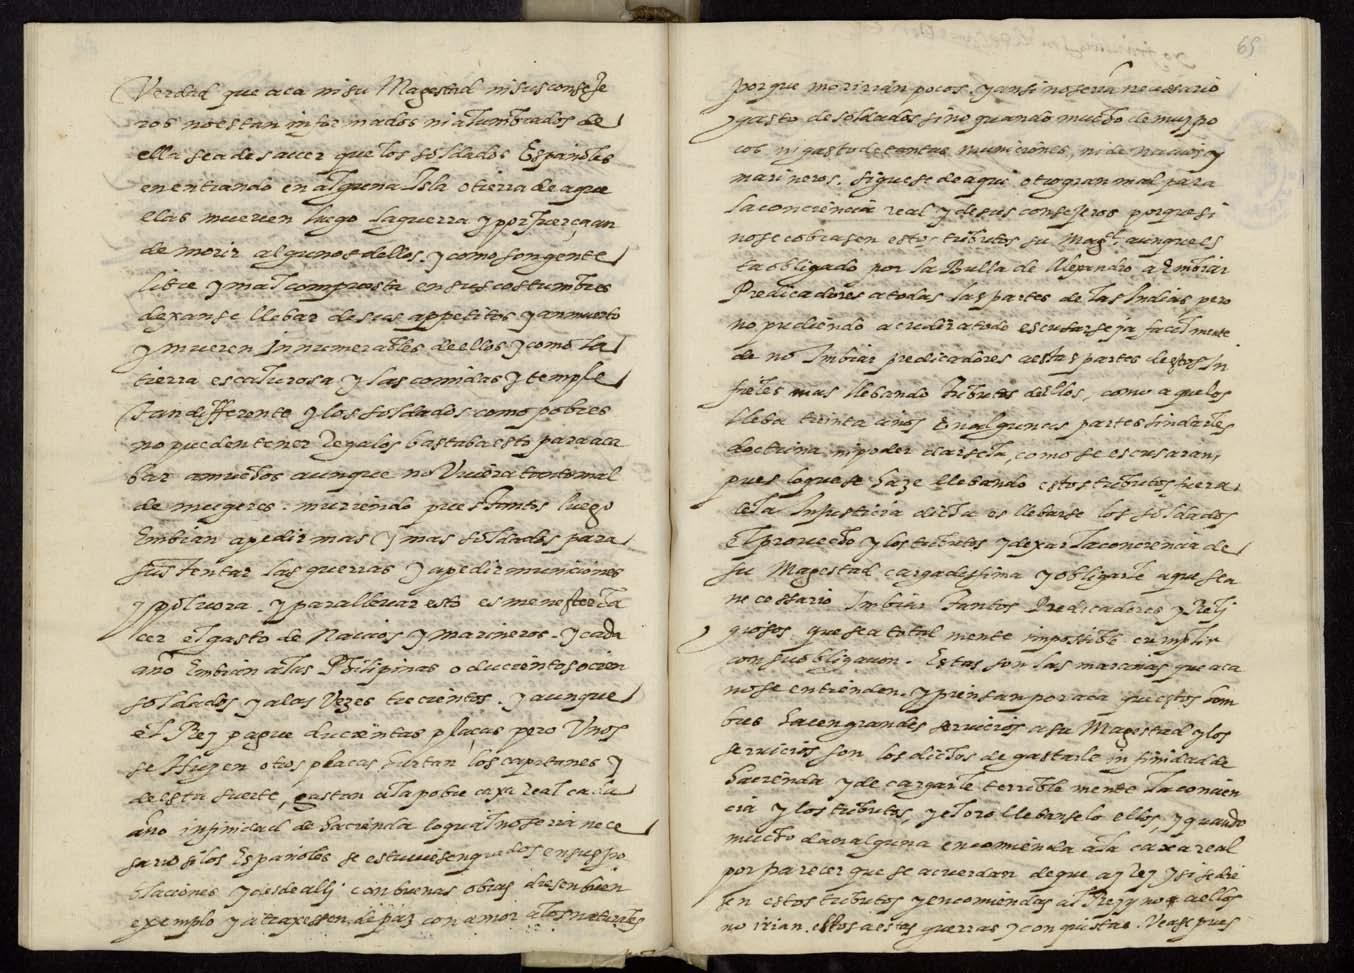 Verdad que aca ni su Magestad ni sus conseje
ros no estan informados ni alumbrados de
ella sea de saver que los soldados Españoles
en entrando en alguna Isla o tierra de aque
ellas mueven luego la guerra y por fuerça an
de morir algunos dellos. y como son gente
libre y mal compuesta en sus costumbres
dexanse llebar de sus appetitos y an muerto
y mueren innumerables de ellos y como la
tierra es calurosa y las comidas y temple
tan differente y los soldados como pobres
no pueden tener regalos bastaba esto para aca
bar a muchos aunque no Uviera tanto mal
de mugeres. muriendo pues tantos luego
Embian a pedir mas y mas soldados para
sustentar las guerras y a pedir municiones
y polvora. y para llevar esto es menester ha
cer el gasto de Navios y marineros. y cada
año Embian a las Philipinas o ducientos o cien
soldados y a las Vezes trecientos. y aunque
El Rey pague ducientas plaças pero Unos
se Huyen otras plaças hurtan los capitanes y
de esta suerte, gastan a la pobre caxa real cada
año infinidad de hacienda lo qual no seria nece
sario si los Españoles se estuviesen quedos en sus po
blaciones y desde alli con buenas obras diesen buen
exemplo y atraxessen de paz con amor a los naturales
65
porque moririan pocos. y ansi no seria necessario
gasto de soldados sino quando mucho de muy po
cos ni gasto de tantas municiones, ni de navios y
marineros. siguese de aqui otro gran mal para
la conciencia real y de sus consejeros porque si
no se cobrasen estos tributos su Magd. aunque es
ta obligado por la Bulla de Alexandro a Embiar
Predicadores a todas las partes de las Indias pero
no pudiendo acudir a todo escusarse ja facilmente
de no Imbiar predicadores a estas partes de estos in
fieles mas llebando Tributos dellos, como a que los
lleba treinta años En algunas partes sin darles
doctrina ni poder darsela, como se escusaran,
pues lo que se haze llebando estos tributos fuera
de la Injusticia dicha es llebarse los soldados
El provecho y los tributos y dexar la conciencia de
su Magestad cargadissima y obligarle a que sea
necessario Imbiar Tantos Predicadores y Reli
giosos que sea totalmente impossible cumplir
con su obligacion. Estas son las marañas que aca
no se entienden. y piensan por aca que estos hom
bres hacen grandes servicios a su Magestad y los
servicios son los dichos de gastarle infinidad de
hacienda y de cargarle terriblemente la concien
cia y los tributos, y el oro llebanselo ellos, y quando
mucho dan alguna encomienda a la caxa real
por parecer que se acuerdan de que ay Rey y si se die
sen estos tributos y encomiendas al Rey y no a ellos
no irian. ellos a estas guerras y conquistas. Vease pues